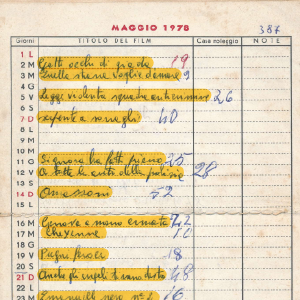 MAGGIO 1978
387
Giorni TITOLO DEL FILM Casa noleggio NOTE
1 L
2 M Gatti occhi di giada 19
3 M Quelle strane voglie d'amore 9
4 G
5 V Legge violenta squadra anticrimine 26
6 S
7 D 40
8 L
9 M
10 M
11 G Signora ha fatto il pieno 25
12 V A tutte le auto della polizia 28
13 S
14 D Amazzoni 52
15 L
16 M Genova a mano armata 22
17 M Cheyenne 10
18 G
19 V Pugni feroci 18
20 S
21 D Anche gli angeli tirano di destro 48
22 L
23 M Emanuelle nera n° 2 16